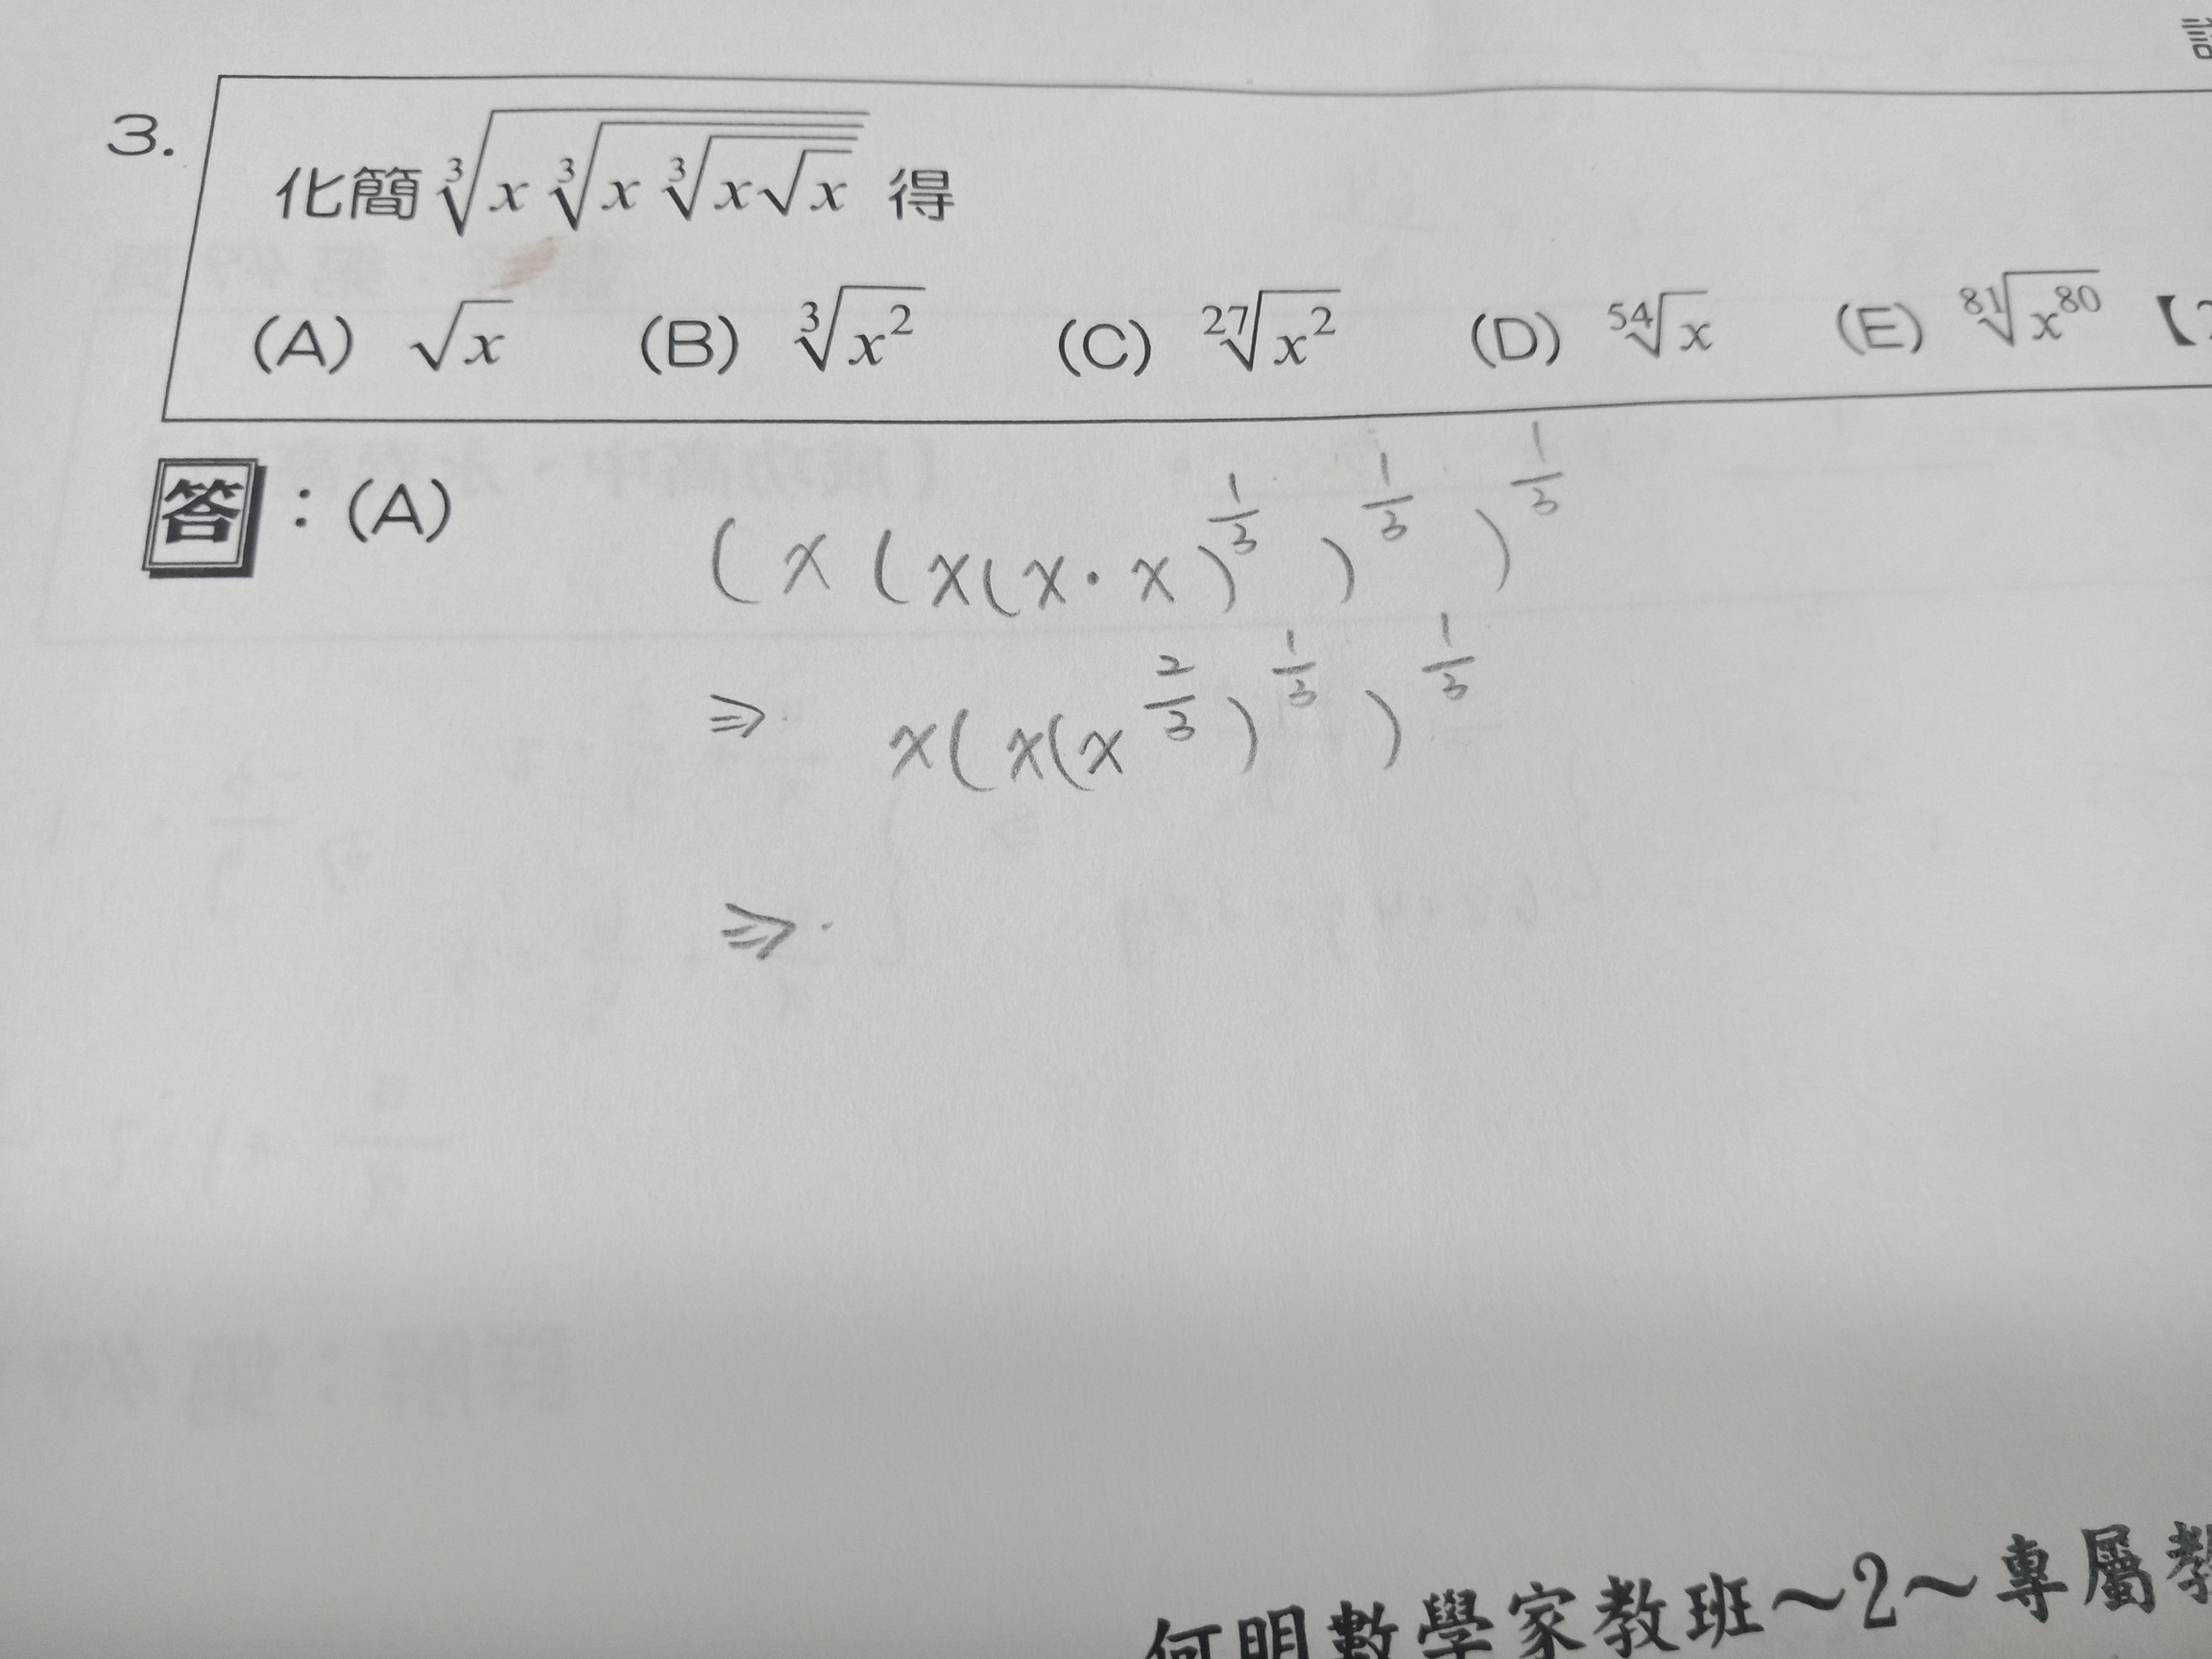 3.
化簡 ∛(x ∛(x ∛(x√x))) 得
(A) √x (B) ∛(x²) (C) ²⁷√(x²) (D) ⁵⁴√x (E) ⁸¹√(x⁸⁰) 【
答：(A)
(x(x(x·x)^{1/3})^{1/3})^{1/3}
⇒ x(x(x^{2/3})^{1/3})^{1/3}
⇒
何明數學家教班～2～專屬教